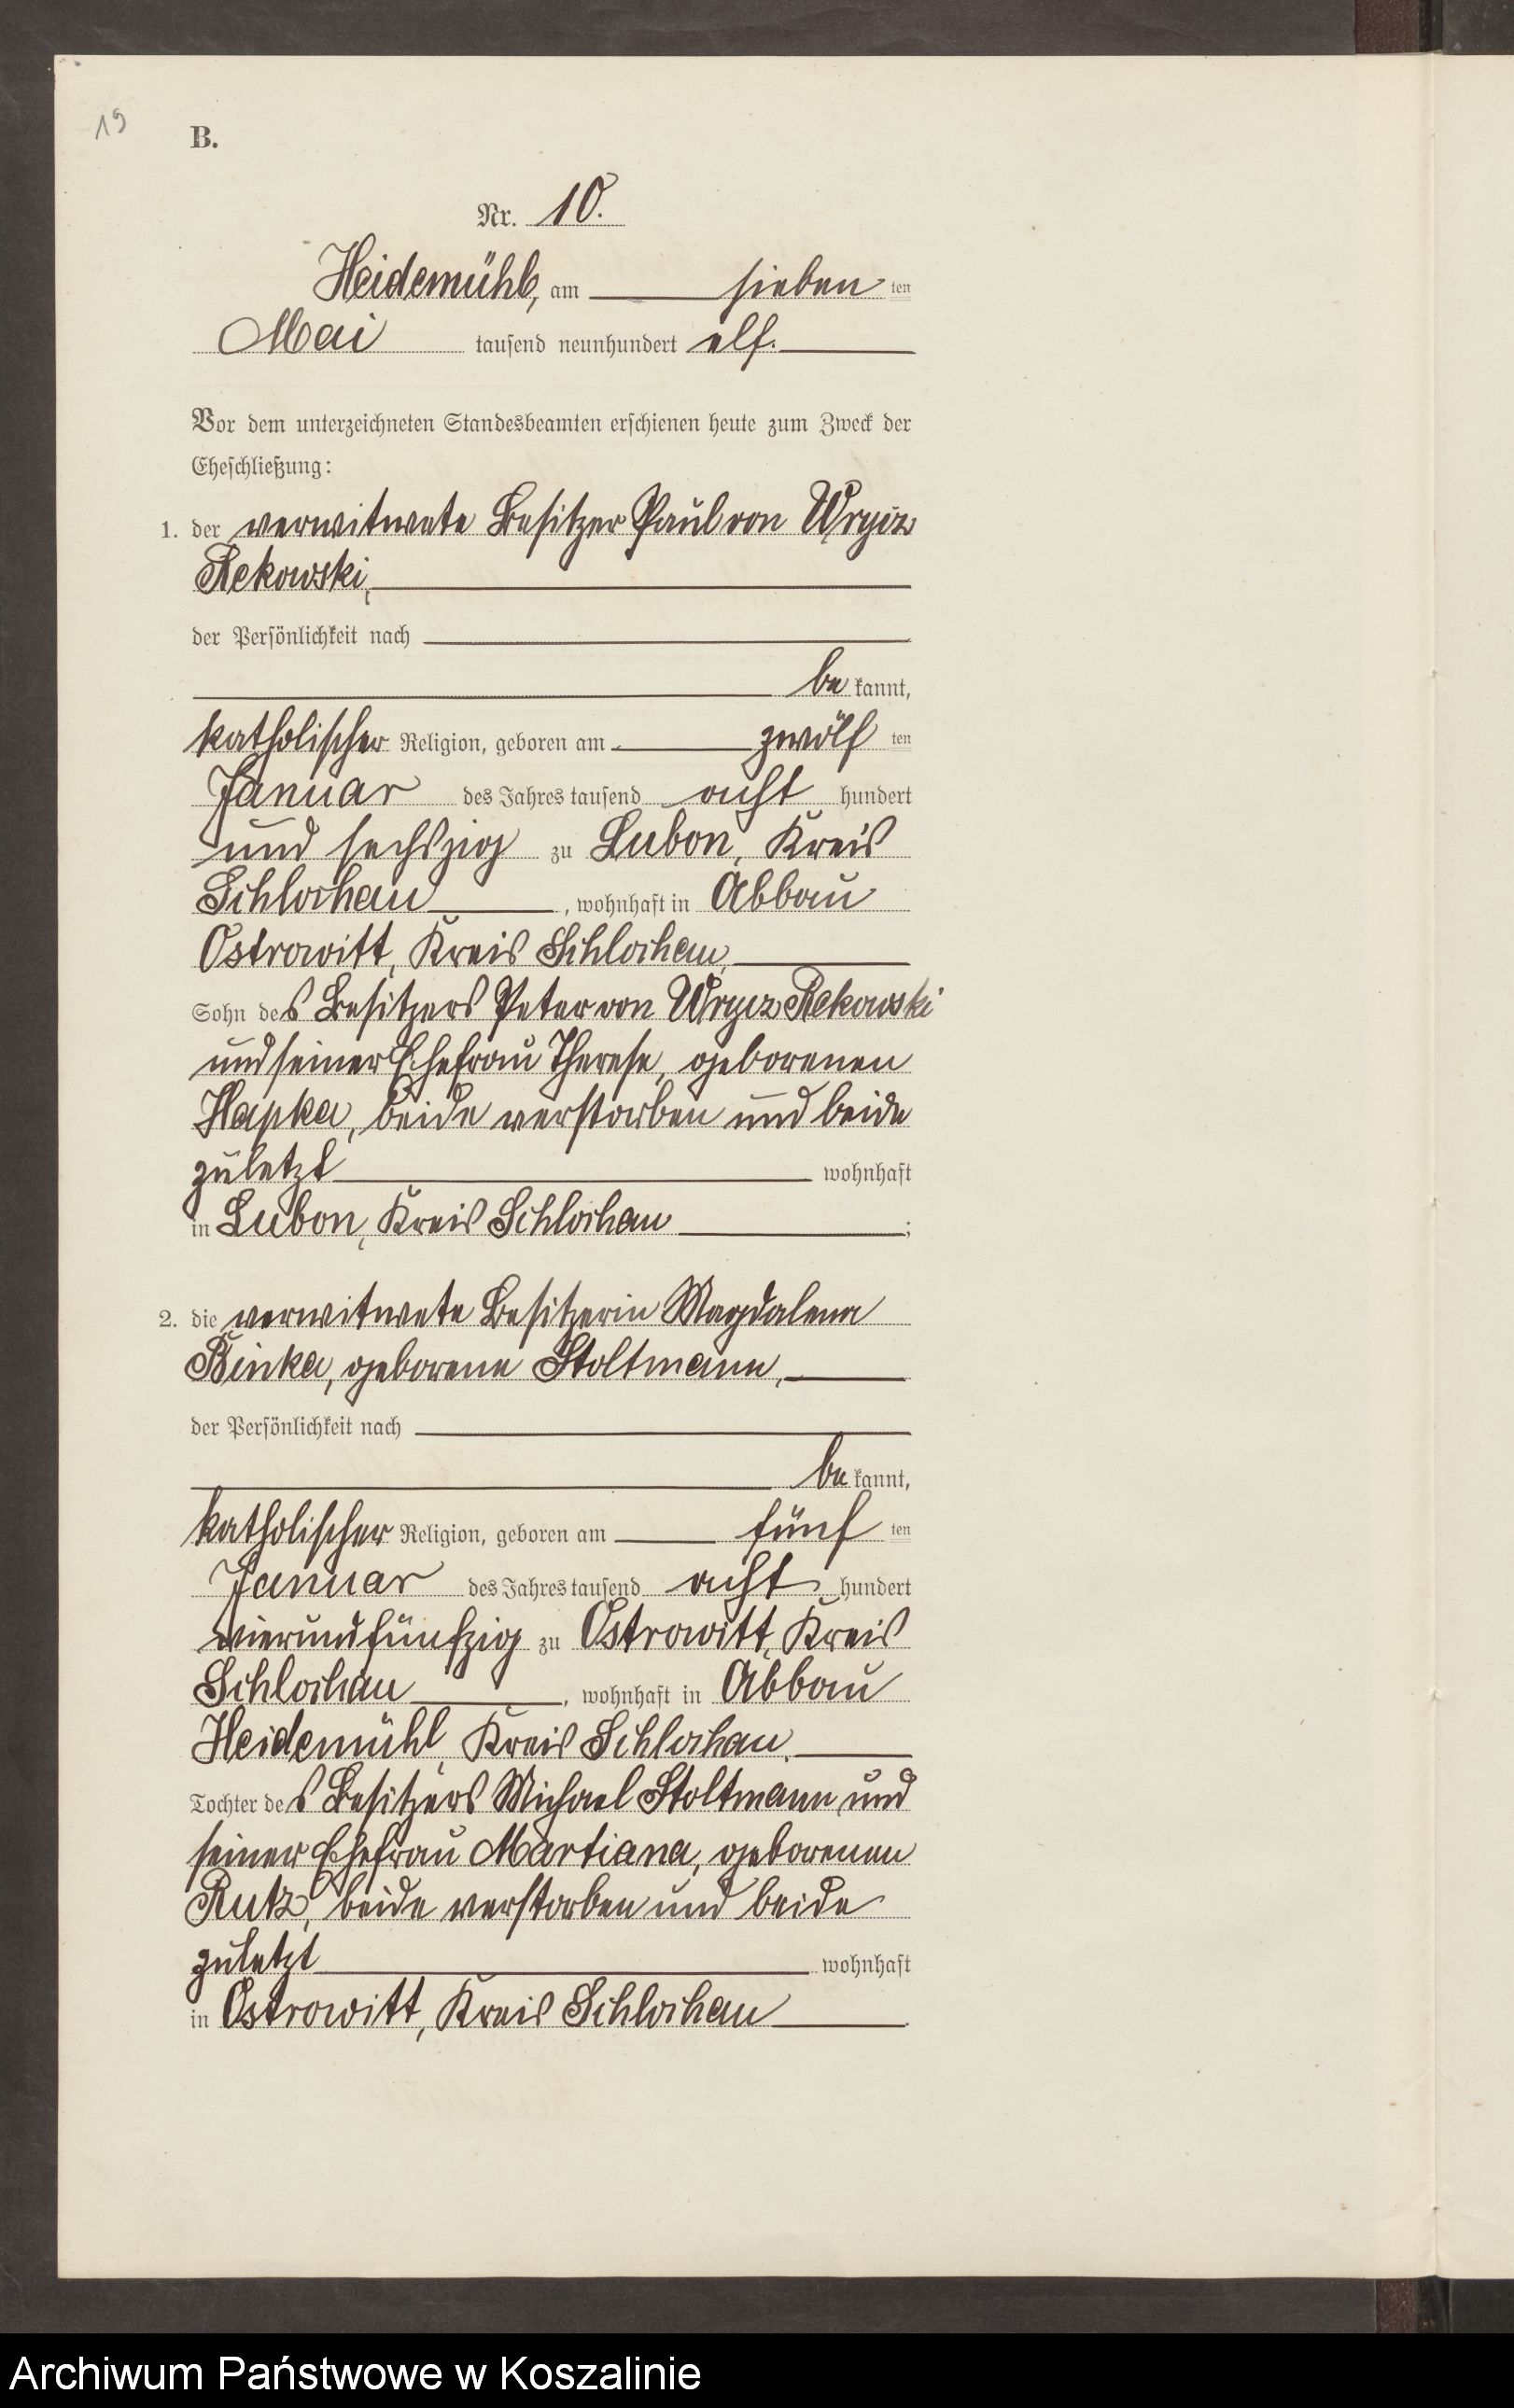 19
B.
Nr. 10.
Heidemühl, am sieben ten
Mai tausend neunhundert elf.
Vor dem unterzeichneten Standesbeamten erschienen heute zum Zweck der
Eheschließung:
1. der verwitwete Besitzer Paul von Wrycz
Rekowski,
der Persönlichkeit nach
be kannt,
katholischer Religion, geboren am zwölf ten
Januar des Jahres tausend acht hundert
und sechszig zu Lubon, Kreis
Schlochau, wohnhaft in Abbau
Ostrowitt, Kreis Schlochau,
Sohn des Besitzers Peter von Wrycz Rekowski
und seiner Ehefrau Therese, geborenen
Hapka, beide verstorben und beide
zuletzt wohnhaft
in Lubon, Kreis Schlochau ;
2. die verwitwete Besitzerin Magdalena
Binka, geborene Stoltmann,
der Persönlichkeit nach
be kannt,
katholischer Religion, geboren am fünf ten
Januar des Jahres tausend acht hundert
vierundfünfzig zu Ostrowitt, Kreis
Schlochau, wohnhaft in Abbau
Heidemühl, Kreis Schlochau,
Tochter des Besitzers Michael Stoltmann und
seiner Ehefrau Martiana, geborenen
Rutz, beide verstorben und beide
zuletzt wohnhaft
in Ostrowitt, Kreis Schlochau.
Archiwum Państwowe w Koszalinie